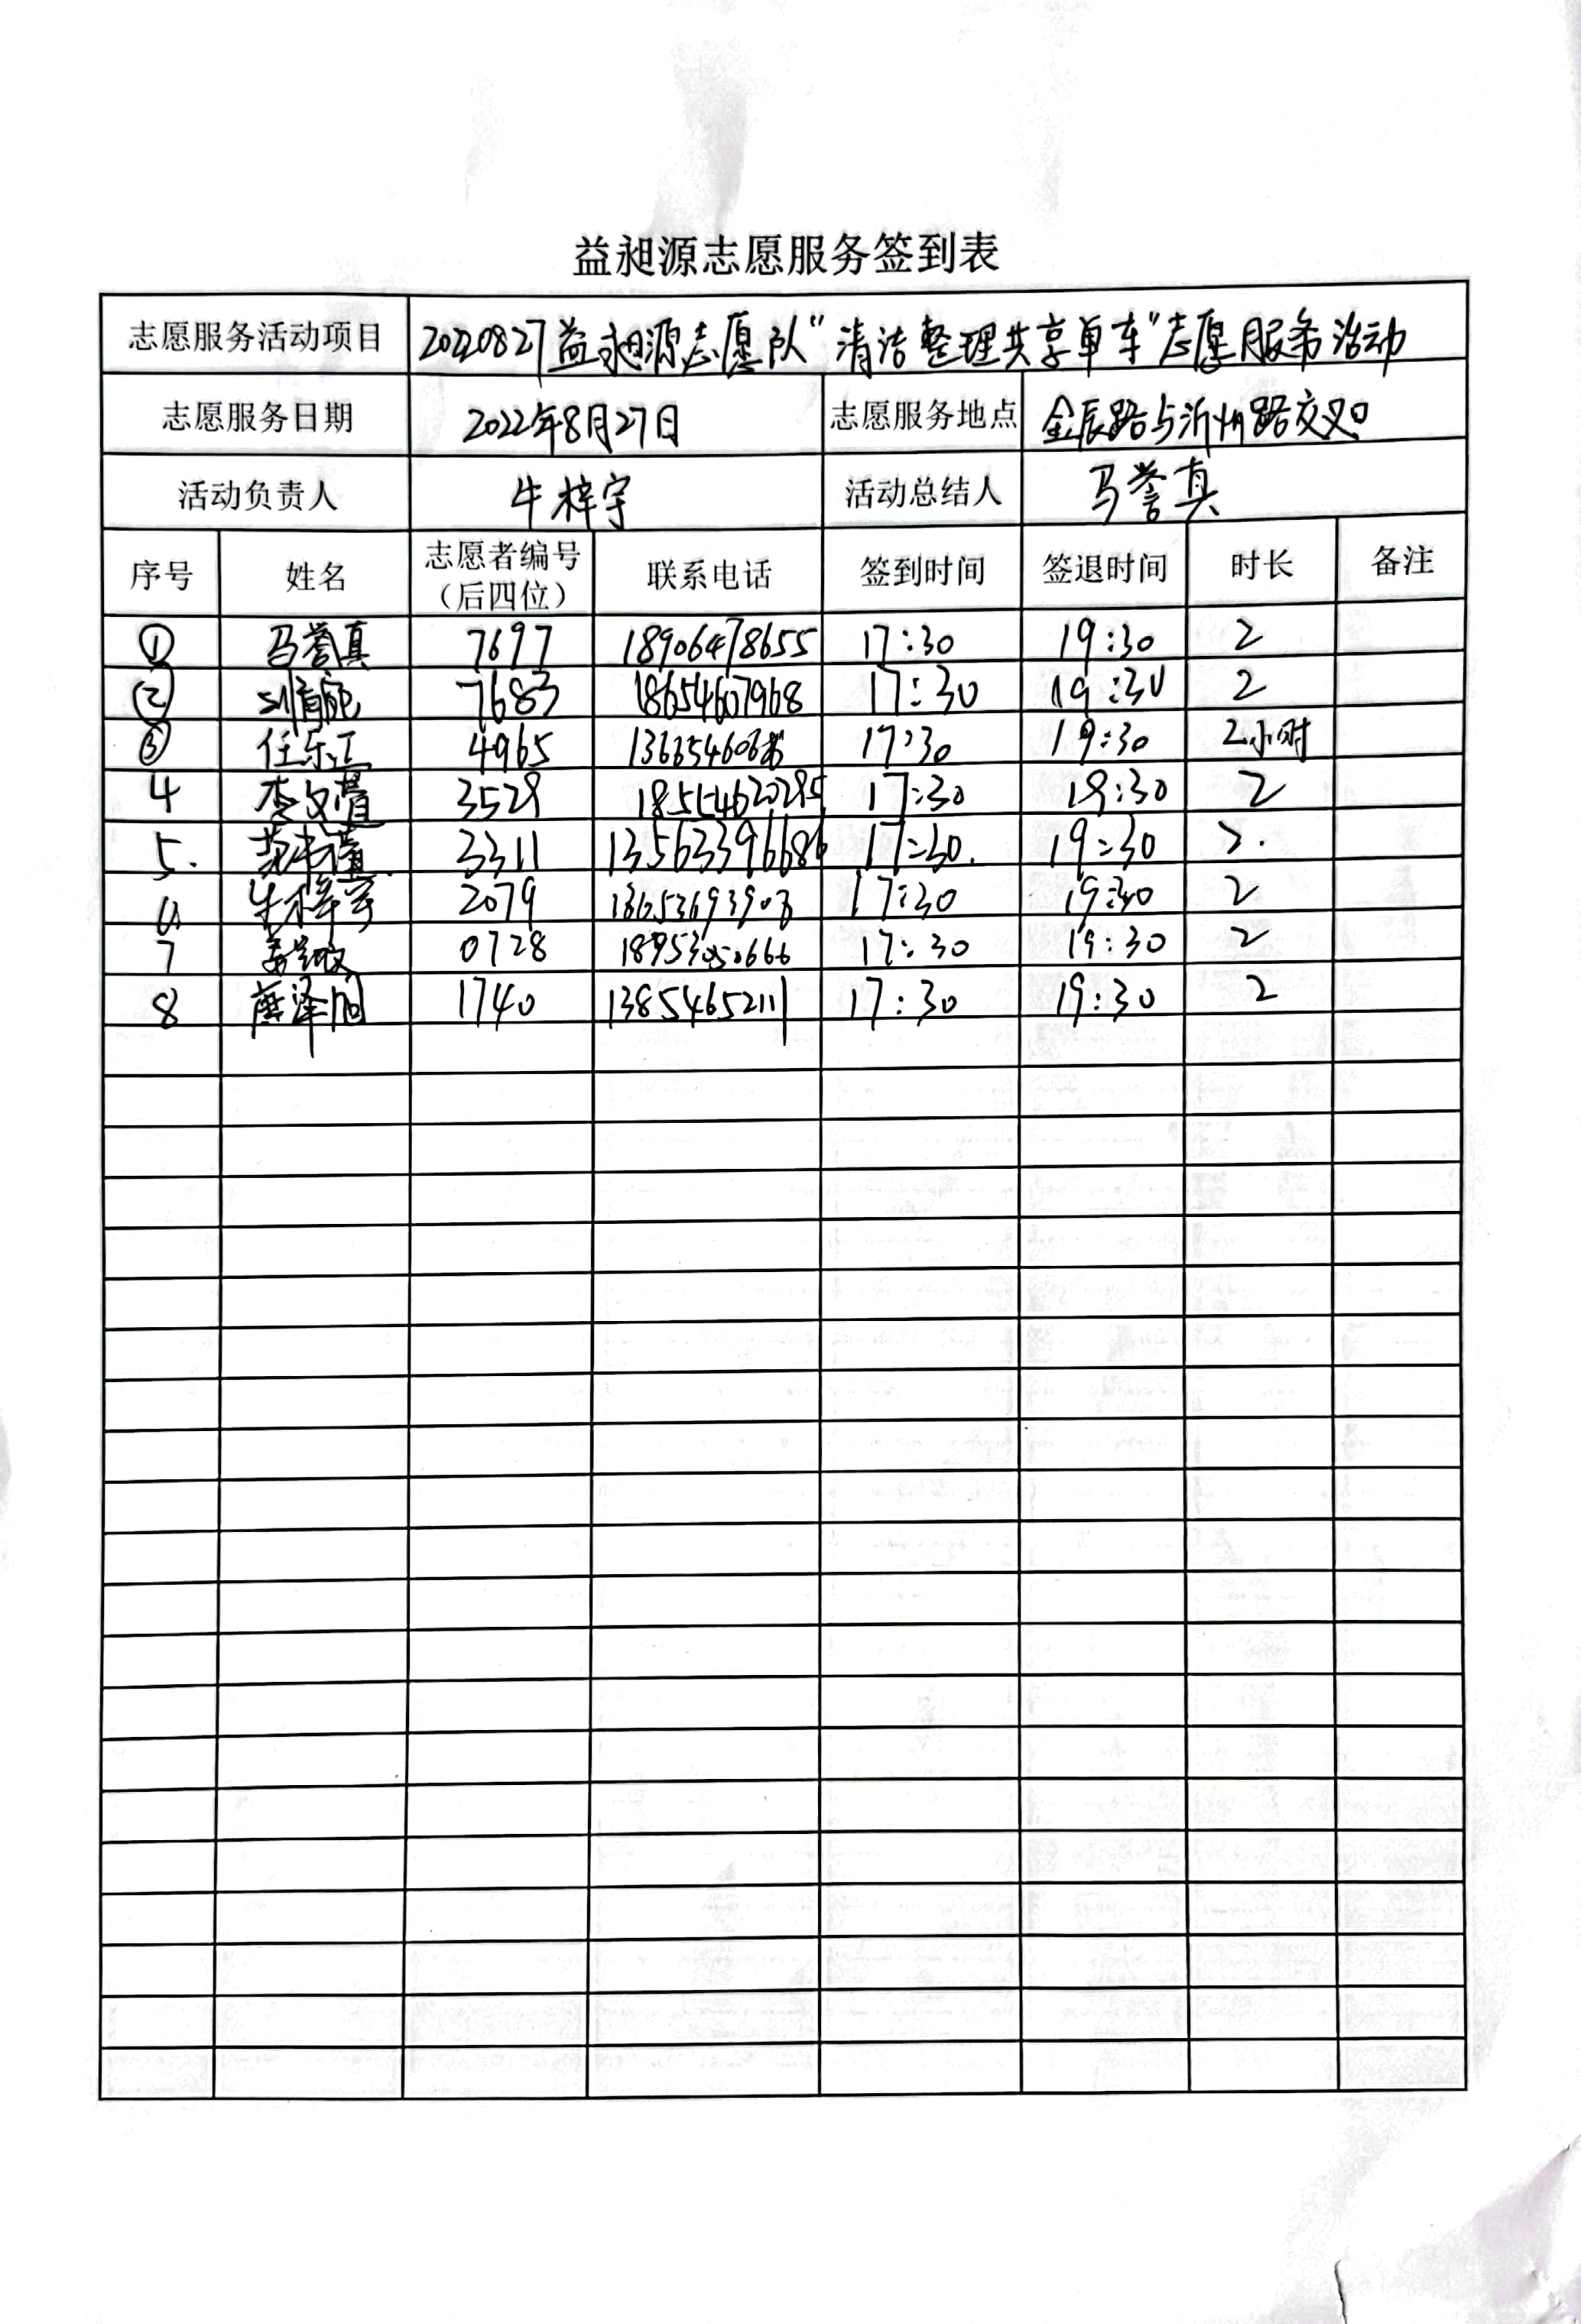 益昶源志愿服务签到表
志愿服务活动项目 20220827益昶源志愿队“清洁整理共享单车”志愿服务活动
志愿服务日期 2022年8月27日 志愿服务地点 金辰路与沂州路交叉口
活动负责人 牛梓宇 活动总结人 马誉真
序号 姓名 志愿者编号（后四位） 联系电话 签到时间 签退时间 时长 备注
① 马誉真 7697 18906478655 17:30 19:30 2
② 7683 18654607968 17:30 19:30 2
③ 任乐 4965 17:30 19:30 2小时
4 李文萱 3529 18554620285 17:30 19:30 2
5. 3311 13563396686 17:30. 19:30 2.
6 牛梓宇 2079 17:30 19:30 2
7 0728 17:30 19:30 2
8 唐泽润 1740 13854652111 17:30 19:30 2